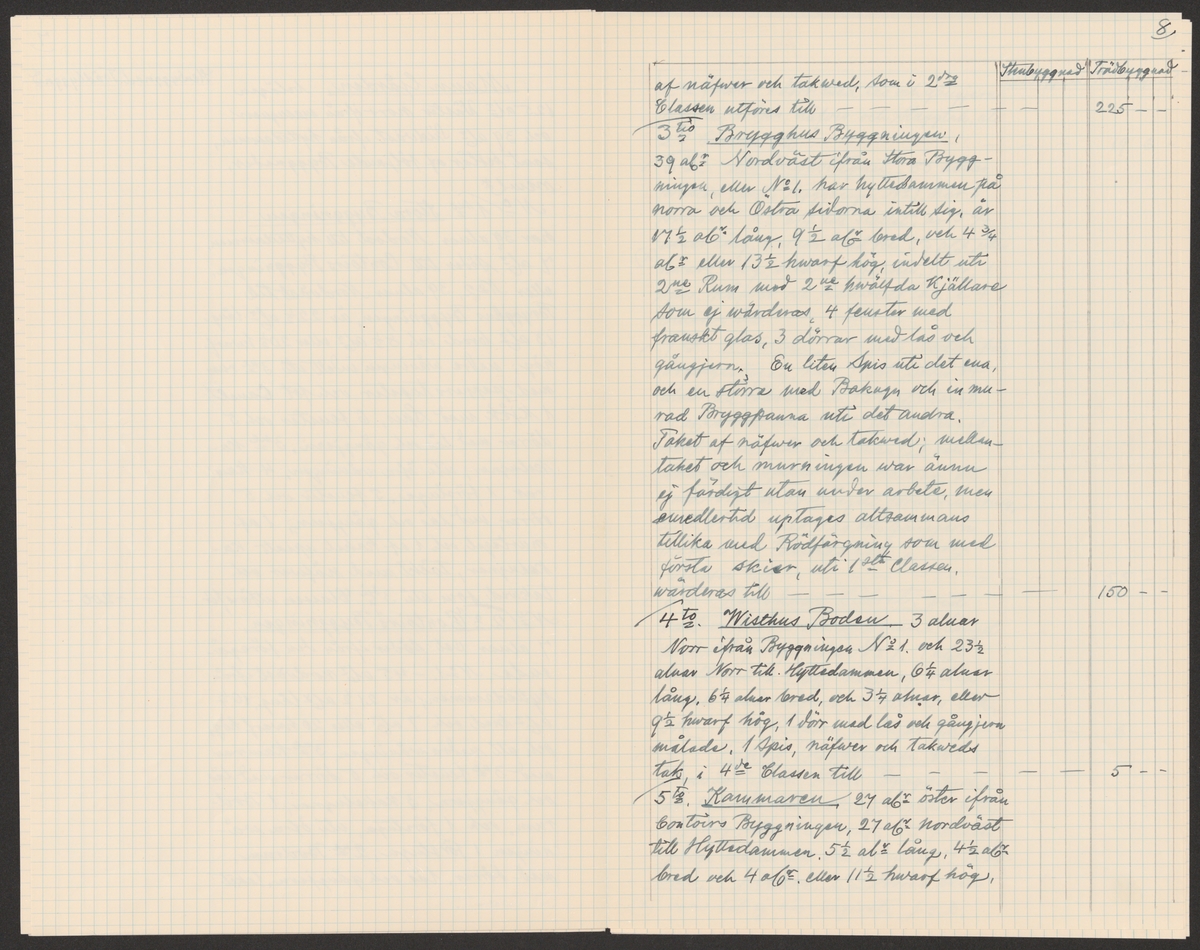 8,
Stenbyggnad Trädbyggnad
af näfwer och takwed, som i 2dra
Classen utföres till — — — — — — 225 - -
3tio Brygghus Byggningen,
39 alnr Nordväst ifrån Stora Bygg-
ningen, eller No 1. har hyttedammen på
norra och Östra sidorna intill sig, är
17 1/2 alnr lång, 9 1/2 alnr bred, och 4 3/4
alnr eller 13 1/2 hwarf hög, indelt uti
2ne Rum med 2ne hwälfda Kjällare
som ej wärderas, 4 fenster med
franskt glas, 3 dörrar med lås och
gångjern. En liten Spis uti det ena,
och en större med Bakugn och in mu-
rad Bryggpanna uti det andra.
Taket af näfwer och takwed; mellan-
taket och murningen war ännu
ej färdigt utan under arbete, men
emedlertid uptages altsammans
tillika med Rödfärgning som med
första skier, uti 1sta Classen.
wärderas till — — — — — — 150 - -
4to. Wisthus Boden 3 alnar
Norr ifrån Byggningen No 1. och 23 1/2
alnar Norr till Hyttedammen, 6 1/4 alnar
lång, 6 1/4 alnar bred, och 3 1/4 alnar, eller
9 1/2 hwarf hög, 1 dörr med lås och gångjern
målade, 1 Spis, näfwer och takweds
tak, i 4de Classen till — — — — — 5 - -
5to. Kammaren, 27 alnr öster ifrån
Contoirs Byggningen, 27 alnr nordväst
till Hyttedammen, 5 1/2 alnr lång, 4 1/2 alnr
bred och 4 alnr. eller 11 1/2 hwarf hög,